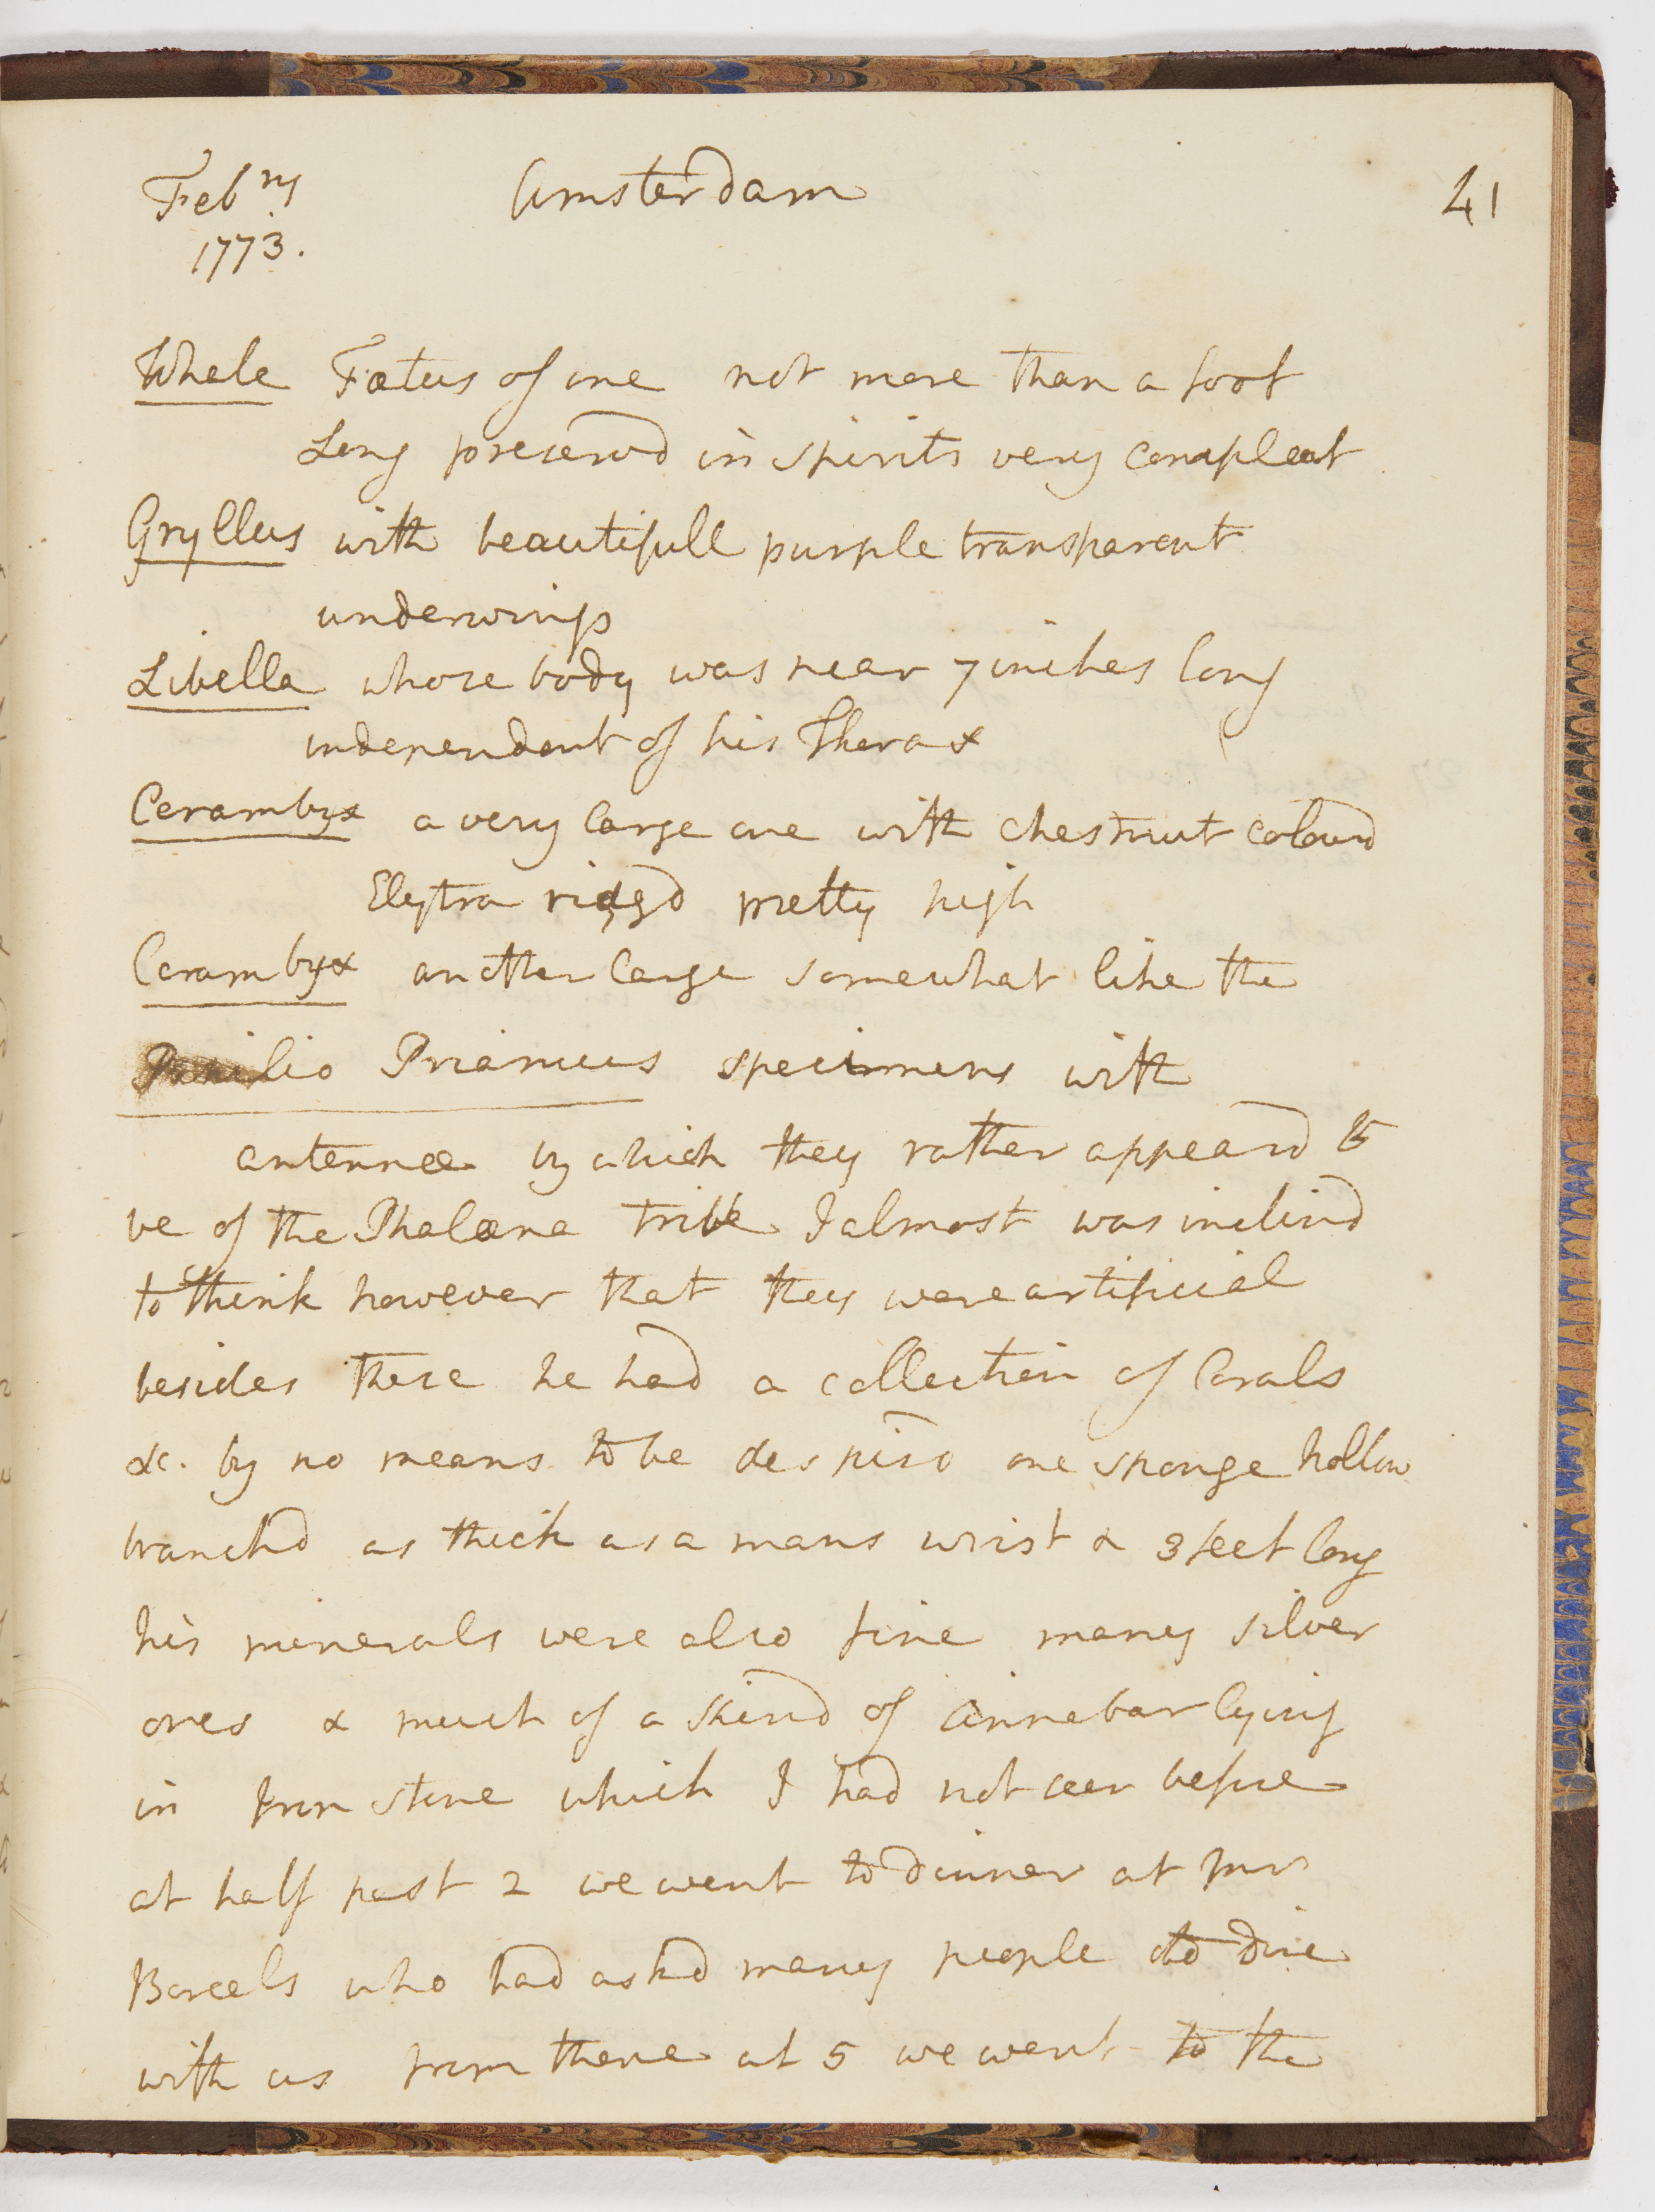 Feb ry Amsterdam 41
1773.
Whale Fœtus of one not more than a foot
Long preservd in spirits very compleat
Gryllus with beautifull purple transparent
underwings
Libella whose body was near 7 inches long
independent of his Thorax
Cerambyx a very large one with chestnut colourd
Elytra ridgd pretty high
Cerambyx another large somewhat like the
Papilio Priamus specimens with
antennæ by which they rather appeard to
be of the Phalæna tribe I almost was inclind
to think however that they were artificial
besides these he had a collection of Corals
&c. by no means to be despisd one sponge hollow
branchd as thick as a mans wrist & 3 feet long
his minerals were also fine many silver
ores & much of a kind of cinnebar lying
in Iron stone which I had not seen before
at half past 2 we went to dinner at Mr
Boreels who had askd many people to dine
with us from thence at 5 we went to the